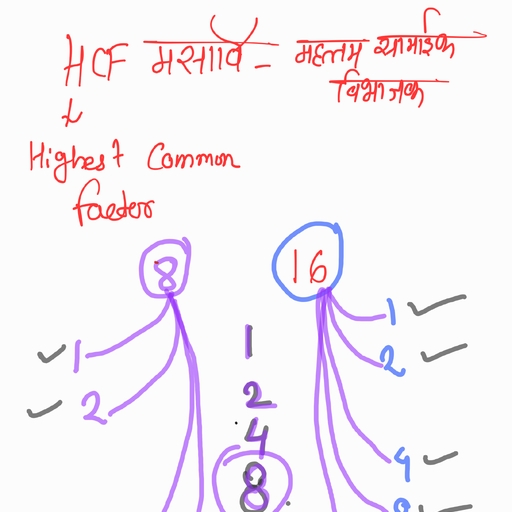 HCF मसावि - महत्तम सामाईक
विभाजक
Highest Common
factor
8 16
1 1 1
2
2 2
4
4
8 8